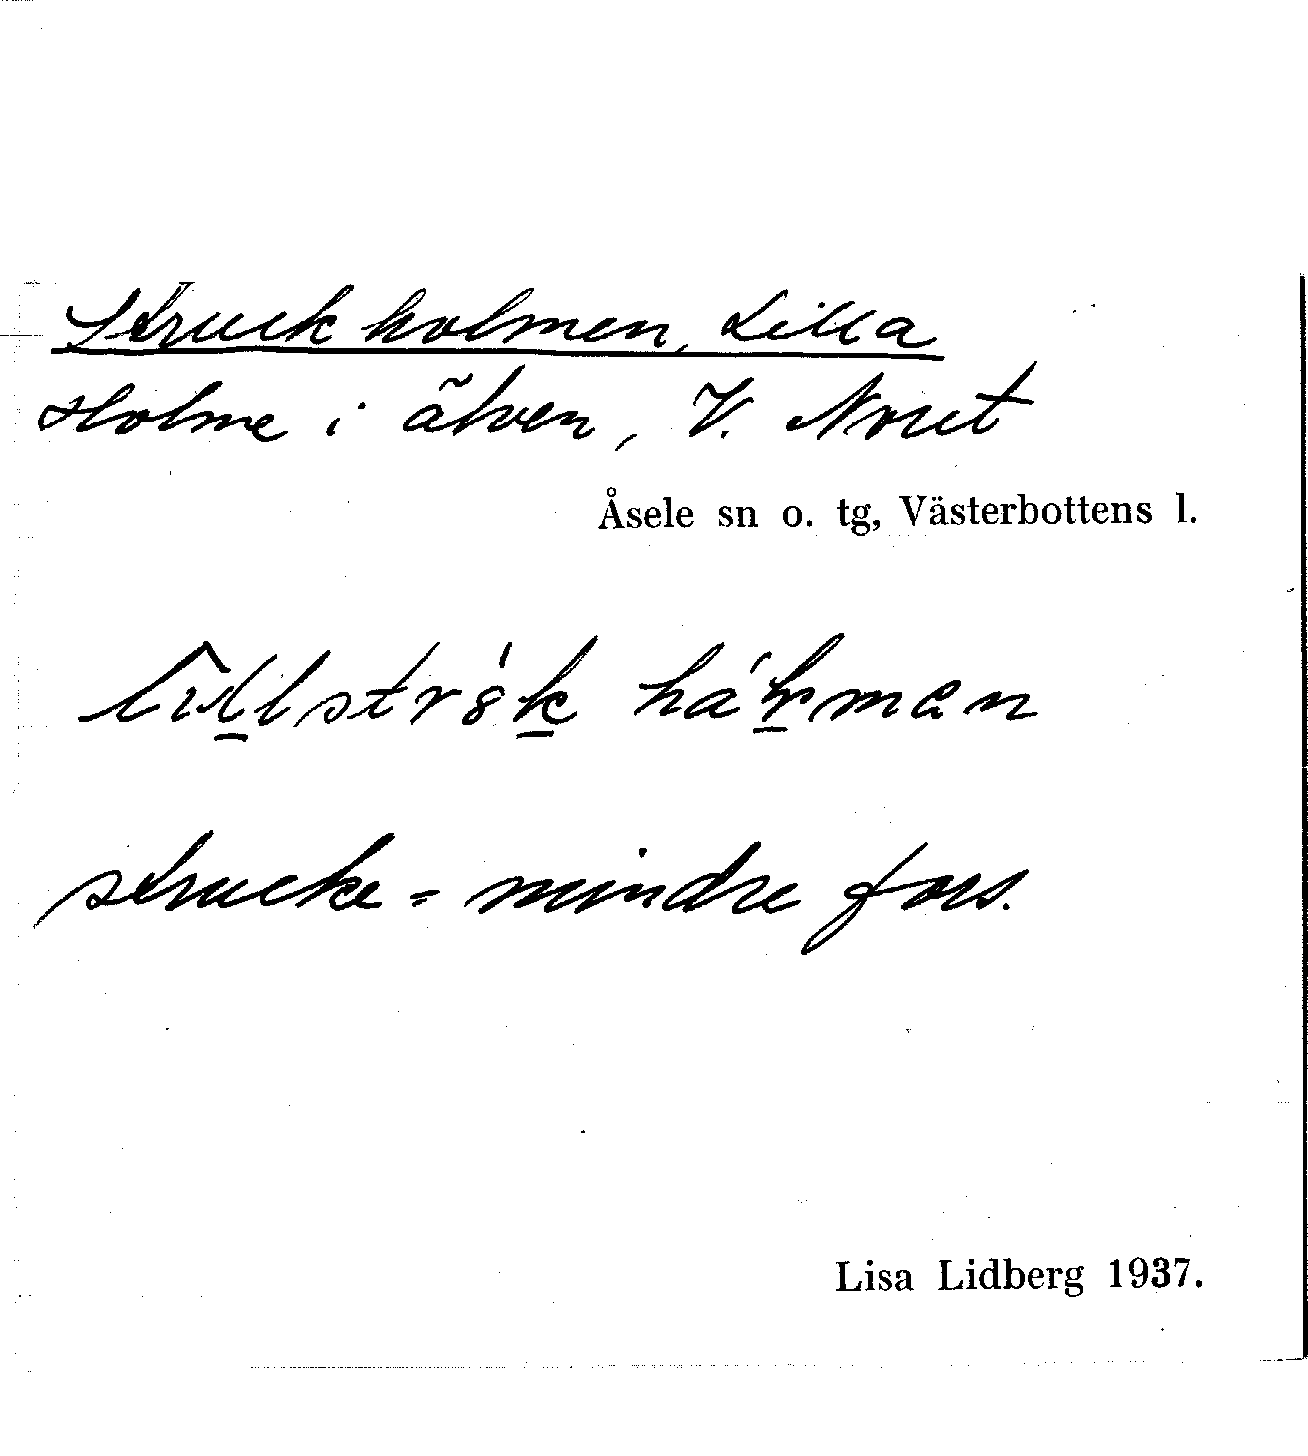 Struckholmen, Lilla
Holme i älven, V. Noret
Åsele sn o. tg, Västerbottens l.
strucke = mindre fors.
Lisa Lidberg 1937.